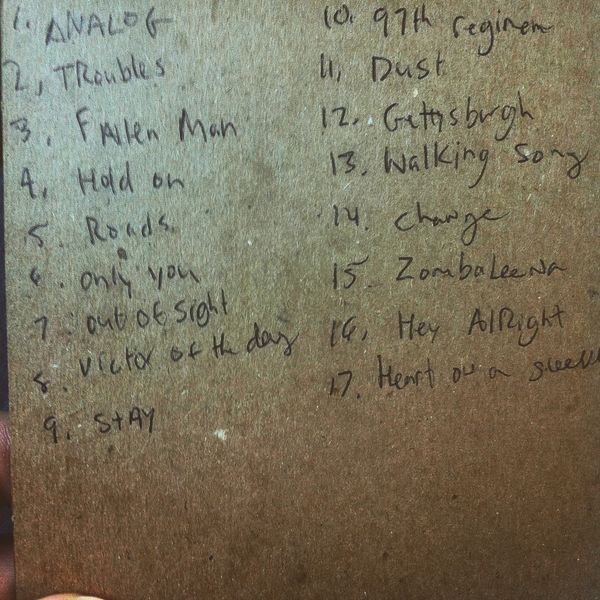 1. ANALOG
2, TRoubles
3. FAllen Man
4. Hold on
5. Roads
6. only you
7. out of sight
8. victor of the day
9. STAY
10. 97th regimen
11, Dust
12. Gettysburgh
13. Walking Song
14. change
15. Zombaleena
16, Hey AlRight
17. Heart on a sleeve